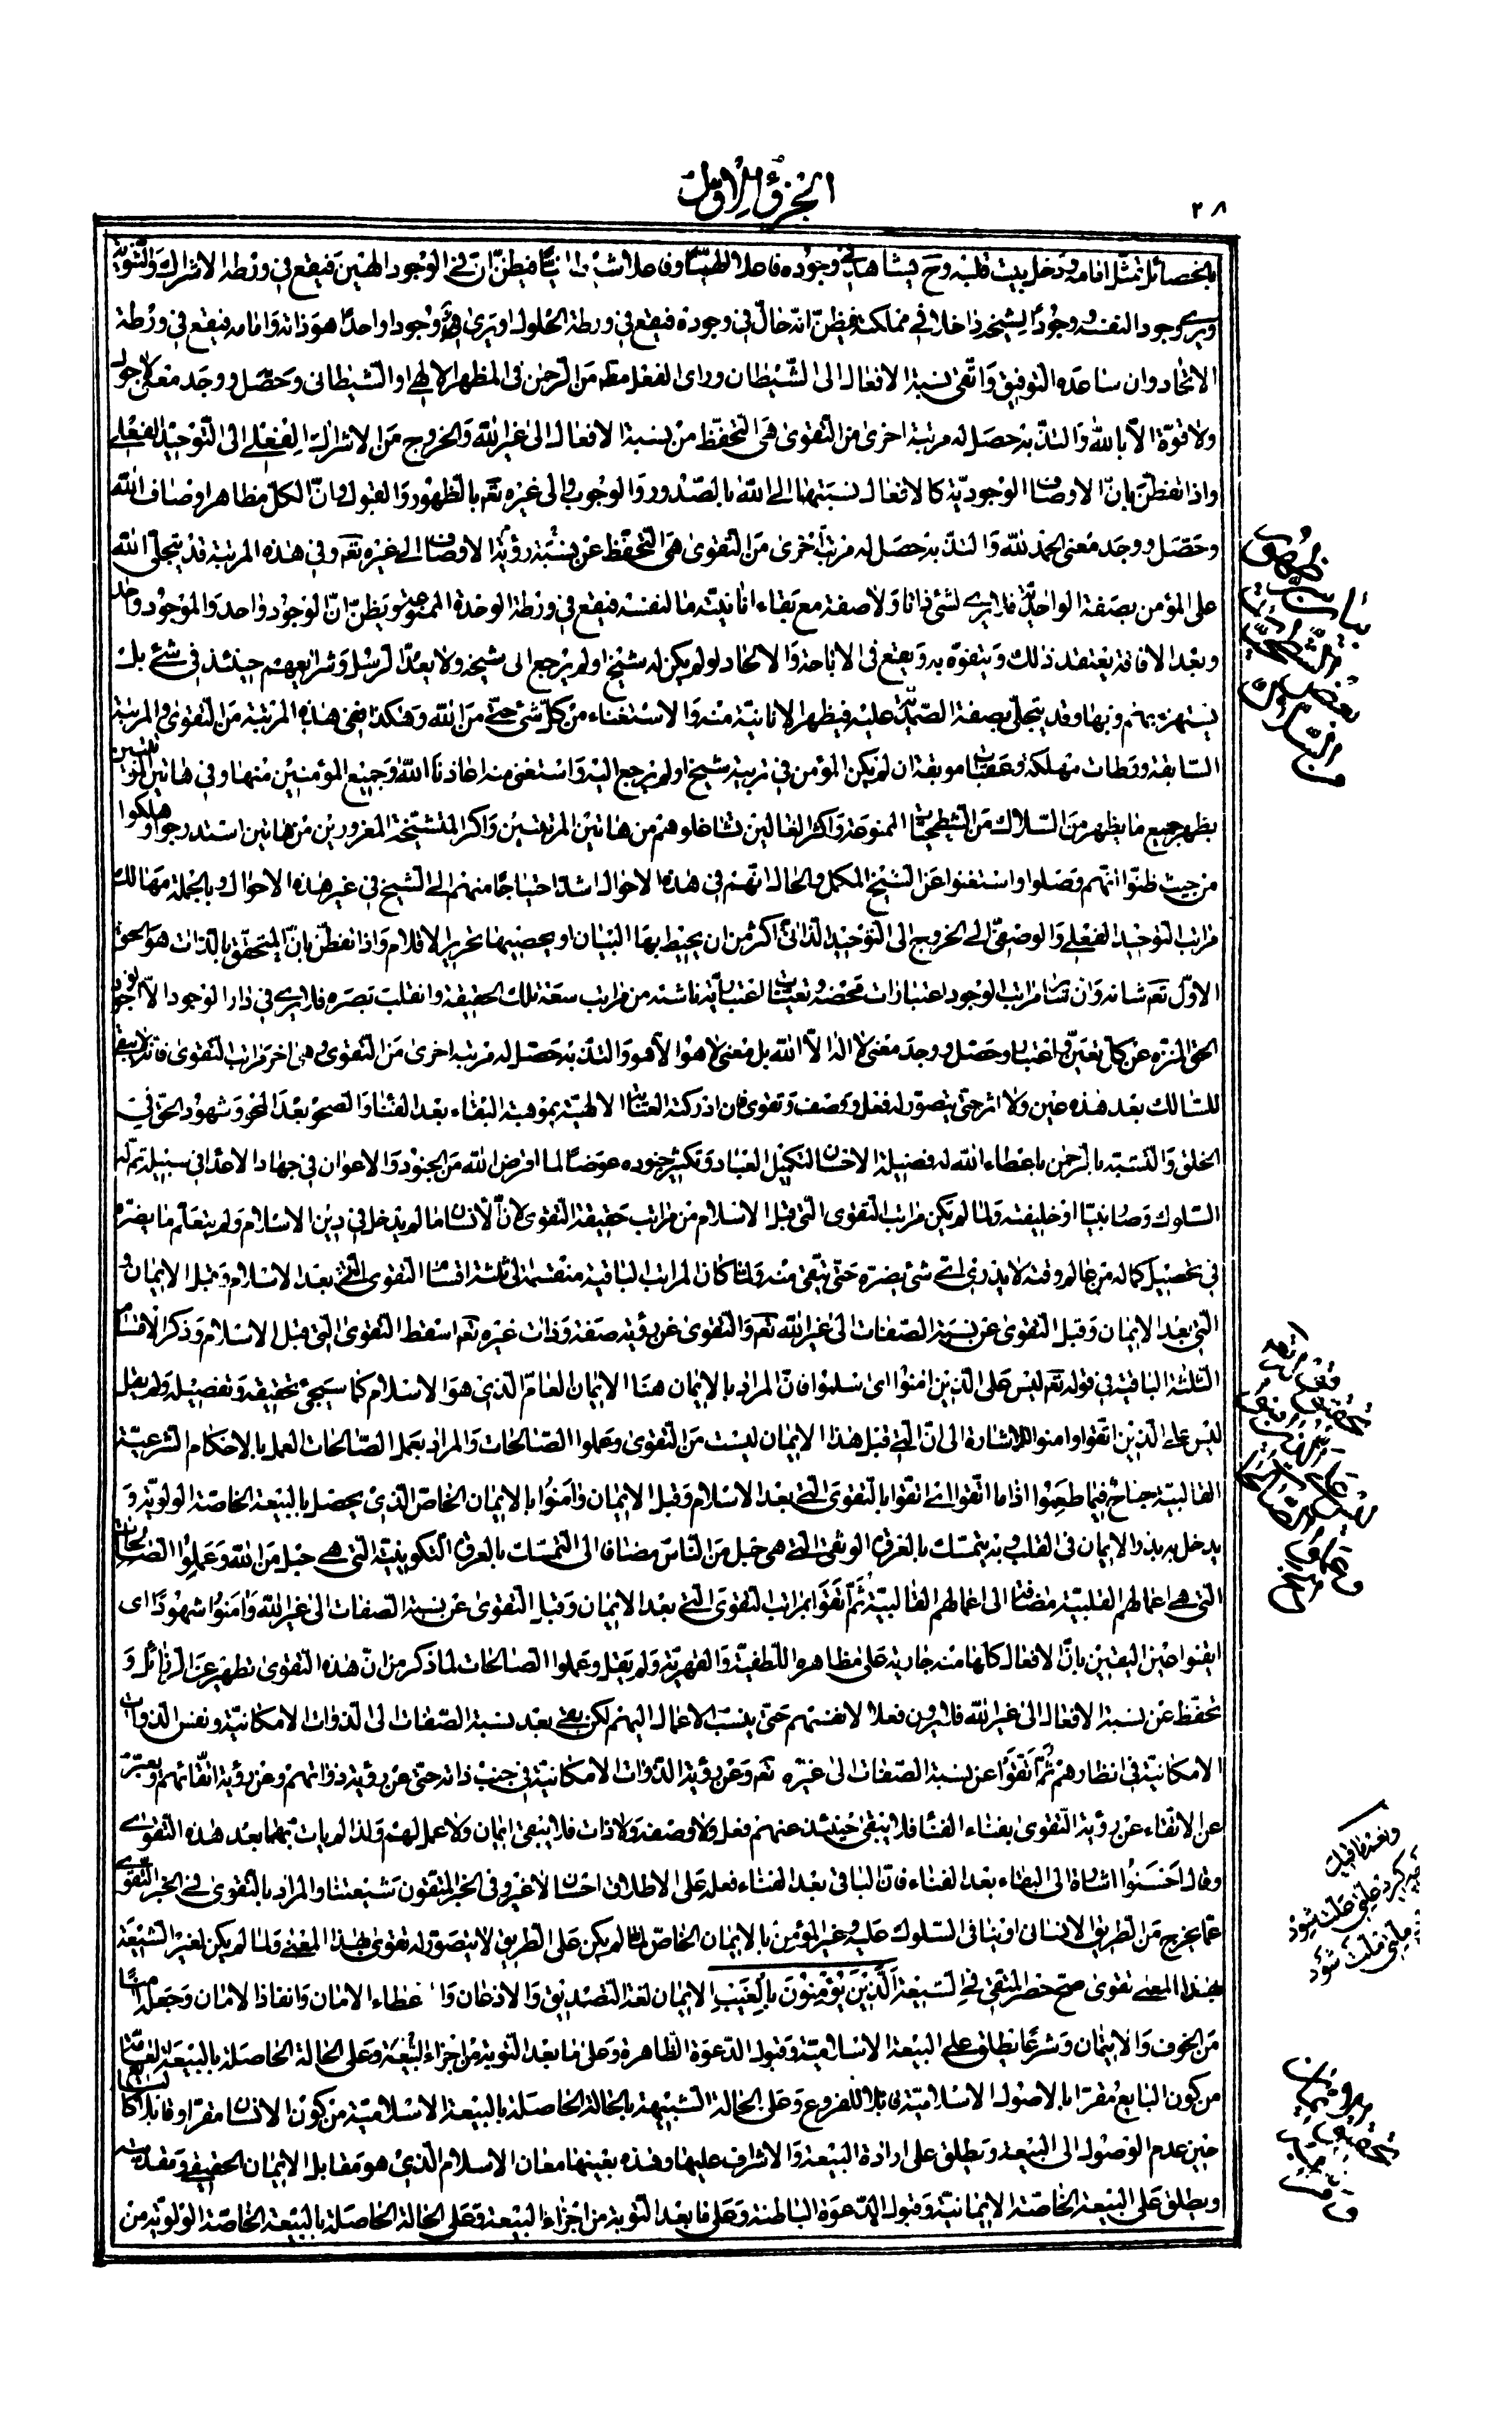 الجزؤ الاول
٢٨
بالخصائل تمثل امامه ودخل بيت قلبه وح يشاهد فى وجوده فاعلا الهيا وفاعلا شيطانيا فيظن ان فى الوجود الهين فيقع فى ورطة الاشراك والثنوية
ويرى وجود النفسه وجودا لشيخه داخلا فى مملكته فيظن انه حال فى وجوده فيقع فى ورطة الحلول او يرى وجودا واحدا هو ذاته وامامه فيقع فى ورطة
الاتحاد وان ساعده التوفيق واتقى نسبة الافعال الى الشيطان وراى الفعل من الرحمن فى المظهر الالهى او الشيطانى وحصل ووجد معنى لاحول
ولا قوة الا بالله والتذ به حصل له مرتبة اخرى من التقوى هى التحفظ من نسبة الافعال الى غير الله والخروج من الاشراك الفعلى الى التوحيد الفعلى
واذا تفطن بان الاوصاف الوجودية كالافعال نسبتها الى الله بالصدور والوجوب والى غيره تعالى بالظهور والقبول وان الكل مظاهر اوصاف الله
وحصل ووجد معنى الحمد لله والتذ به حصل له مرتبة اخرى من التقوى هى التحفظ عن نسبة رؤية الاوصاف الى غيره تعالى وفى هذه المرتبة قد يتجلى الله
على المؤمن بصفة الواحدية فلا يرى لشئ ذاتا ولا صفة مع بقاء انانية ما لنفسه فيقع فى ورطة الوحدة الممنوعة ويظن ان الوجود واحد والموجود واحد
وبعد الافاقة يعتقد ذلك ويتفوه به ويقع فى الاباحة والالحاد لو لم يكن له شيخ او لم يرجع الى شيخه ولا يعد الرسل وشرائعهم حينئذ فى شئ بل
يستهزء بهم وبها وقد يتجلى بصفة الصمدية عليه فيظهر الانانية منه والاستغناء من كل شئ حتى من الله وهكذا ففى هذه المرتبة من التقوى والمرتبة
السابقة ورطات مهلكة وعقبات موبقة ان لم يكن المؤمن فى تربية شيخ او لم يرجع اليه واستغنى منه اعاذنا الله وجميع المؤمنين منها وفى هاتين المرتبتين
يظهر جميع ما يظهر من السلاك من الشطحيات الممنوعة واكثر الغالين نشأ غلوهم من هاتين المرتبتين واكثر المتشيخة المغرورين من هاتين استدرجوا وهلكوا
من حيث ظنوا انهم وصلوا واستغنوا عن الشيخ المكمل والحال انهم فى هذه الاحوال اشد احتياجا منهم الى الشيخ فى غير هذه الاحوال وبالجملة مهالك
مراتب التوحيد الفعلى والوصفى الى الخروج الى التوحيد الذاتى اكثر من ان يحيط بها البيان او يحصيها تحرير الاقلام واذا تفطن بان المتحقق بالذات هو الحق
الاول تعالى شانه وان مراتب الوجود اعتبارات محضة وتعينات اعتبارية ناشئة من مراتب سعة تلك الحقيقة وانقلب بصره فلا يرى فى دار الوجود الا الوجود
الحق المنزه عن كل تعين واعتبار وحصل ووجد معنى لا اله الا الله بل معنى لا هو الا هو والتذ به حصل له مرتبة اخرى من التقوى وهى اخر مراتب التقوى فانه لا يبقى
للسالك بعد هذه عين ولا اثر حتى يتصور له فعل ووصف وتقوى فان ادركته العناية الالهية بموهبة البقاء بعد الفناء والصحو بعد المحو وشهود الحق فى
الخلق والتشبه بالرحمن باعطاء الله له فضيلة الاحسان لتكميل العباد وتكثير جنوده عوضا لما اقرض الله من الجنود والاعوان فى جهاد الاعداء فى سبيله تم له
السلوك وصار نبيا او خليفته ولما لم يكن مراتب التقوى التى قبل الاسلام من مراتب حقيقة التقوى لان الانسان ما لم يدخل فى دين الاسلام ولم يتعلم ما يضره
فى تحصيل كماله من عالم وقته لا يدرى اى شئ يضره حتى يتقى منه ولما كان المراتب الباقية منقسمة الى ثلثة اقسام التقوى التى بعد الاسلام وقبل الايمان و
التى بعد الايمان وقبل التقوى عن نسبة الصفات الى غير الله تعالى والتقوى عن رؤية صفة وذات غيره تعالى اسقط التقوى التى قبل الاسلام وذكر الاقسام
الثلثة الباقية فى قوله تعالى ليس على الذين امنوا اى اسلموا فان المراد بالايمان هنا الايمان العام الذى هو الاسلام كما سيجئ تحقيقه وتفصيله ولم يقل
ليس على الذين اتقوا وامنوا للاشارة الى ان التى قبل هذا الايمان ليست من التقوى وعملوا الصالحات والمراد بعمل الصالحات العمل بالاحكام الشرعية
القالبية جناح فيما طعموا اذا ما اتقوا اى اتقوا بالتقوى التى بعد الاسلام وقبل الايمان وامنوا بالايمان الخاص الذى يحصل بالبيعة الخاصة الولوية و
يدخل به بذر الايمان فى القلب وبه يتمسك بالعروة الوثقى التى هى حبل من الناس مضافا الى التمسك بالعروة التكوينية التى هى حبل من الله وعملوا الصالحات
التى هى اعمالهم القلبية مضافا الى اعمالهم القالبية ثم اتقوا بمراتب التقوى التى بعد الايمان وقبل التقوى عن نسبة الصفات الى غير الله وامنوا شهودا اى
ايقنوا عين اليقين بان الافعال كلها منه جارية على مظاهره اللطفية والقهرية ولم يقل وعملوا الصالحات لما ذكر من ان هذه التقوى تطهير عن الرذائل و
تحفظ عن نسبة الافعال الى غير الله فلا يرون فعلا لانفسهم حتى ينسب الاعمال اليهم لكن بقى بعد نسبة الصفات الى الذوات الامكانية ونفس الذوات
الامكانية فى انظارهم ثم اتقوا عن نسبة الصفات الى غيره تعالى وعن رؤية الذوات الامكانية فى جنب ذاته حتى عن رؤية ذواتهم وعن رؤية اتقائهم ويعبر
عن الاتقاء عن رؤية التقوى بفناء الفناء فلا يبقى حينئذ عنهم فعل ولا وصف ولا ذات فلا يبقى ايمان ولا عمل لهم ولذا لم يات بهما بعد هذه التقوى
وقال احسنوا اشارة الى البقاء بعد الفناء فان الباقى بعد الفناء فعله على الاطلاق احسان لا غير وفى الخبر المتقون شيعتنا والمراد بالتقوى فى الخبر التقوى
عما يخرج من الطريق الانسانى او ينافى السلوك عليه وغير المؤمن بالايمان الخاص لما لم يكن على الطريق لا يتصور له تقوى بهذا المعنى ولما لم يكن لغير الشيعة
بهذا المعنى تقوى صح حصر المتقى فى الشيعة الذين يؤمنون بالغيب الايمان لغة التصديق والاذعان واعطاء الامان وانفاذ الامان وجعله امينا
من الخوف والايتمان وشرعا يطلق على البيعة الاسلامية وقبول الدعوة الظاهرة وعلى ما بعد التوبة من اجزاء البيعة وعلى الحالة الحاصلة بالبيعة العامة
من كون البايع مقرا بالاصول الاسلامية قابلا للفروع وعلى الحالة الشبيهة بالحالة الحاصلة بالبيعة الاسلامية من كون الانسان مقرا وقابلا كما
حين عدم الوصول الى البيعة ويطلق على ارادة البيعة والاشراف عليها وهذه بعينها معان الاسلام الذى هو مقابل الايمان الحقيقى ومقدمته
ويطلق على البيعة الخاصة الايمانية وقبول الدعوة الباطنة وعلى ما بعد التوبة من اجزاء البيعة وعلى الحالة الحاصلة بالبيعة الخاصة الولوية من
بيان سبب ظهور
بعض الشطحيات
من السلاك
تحقيق